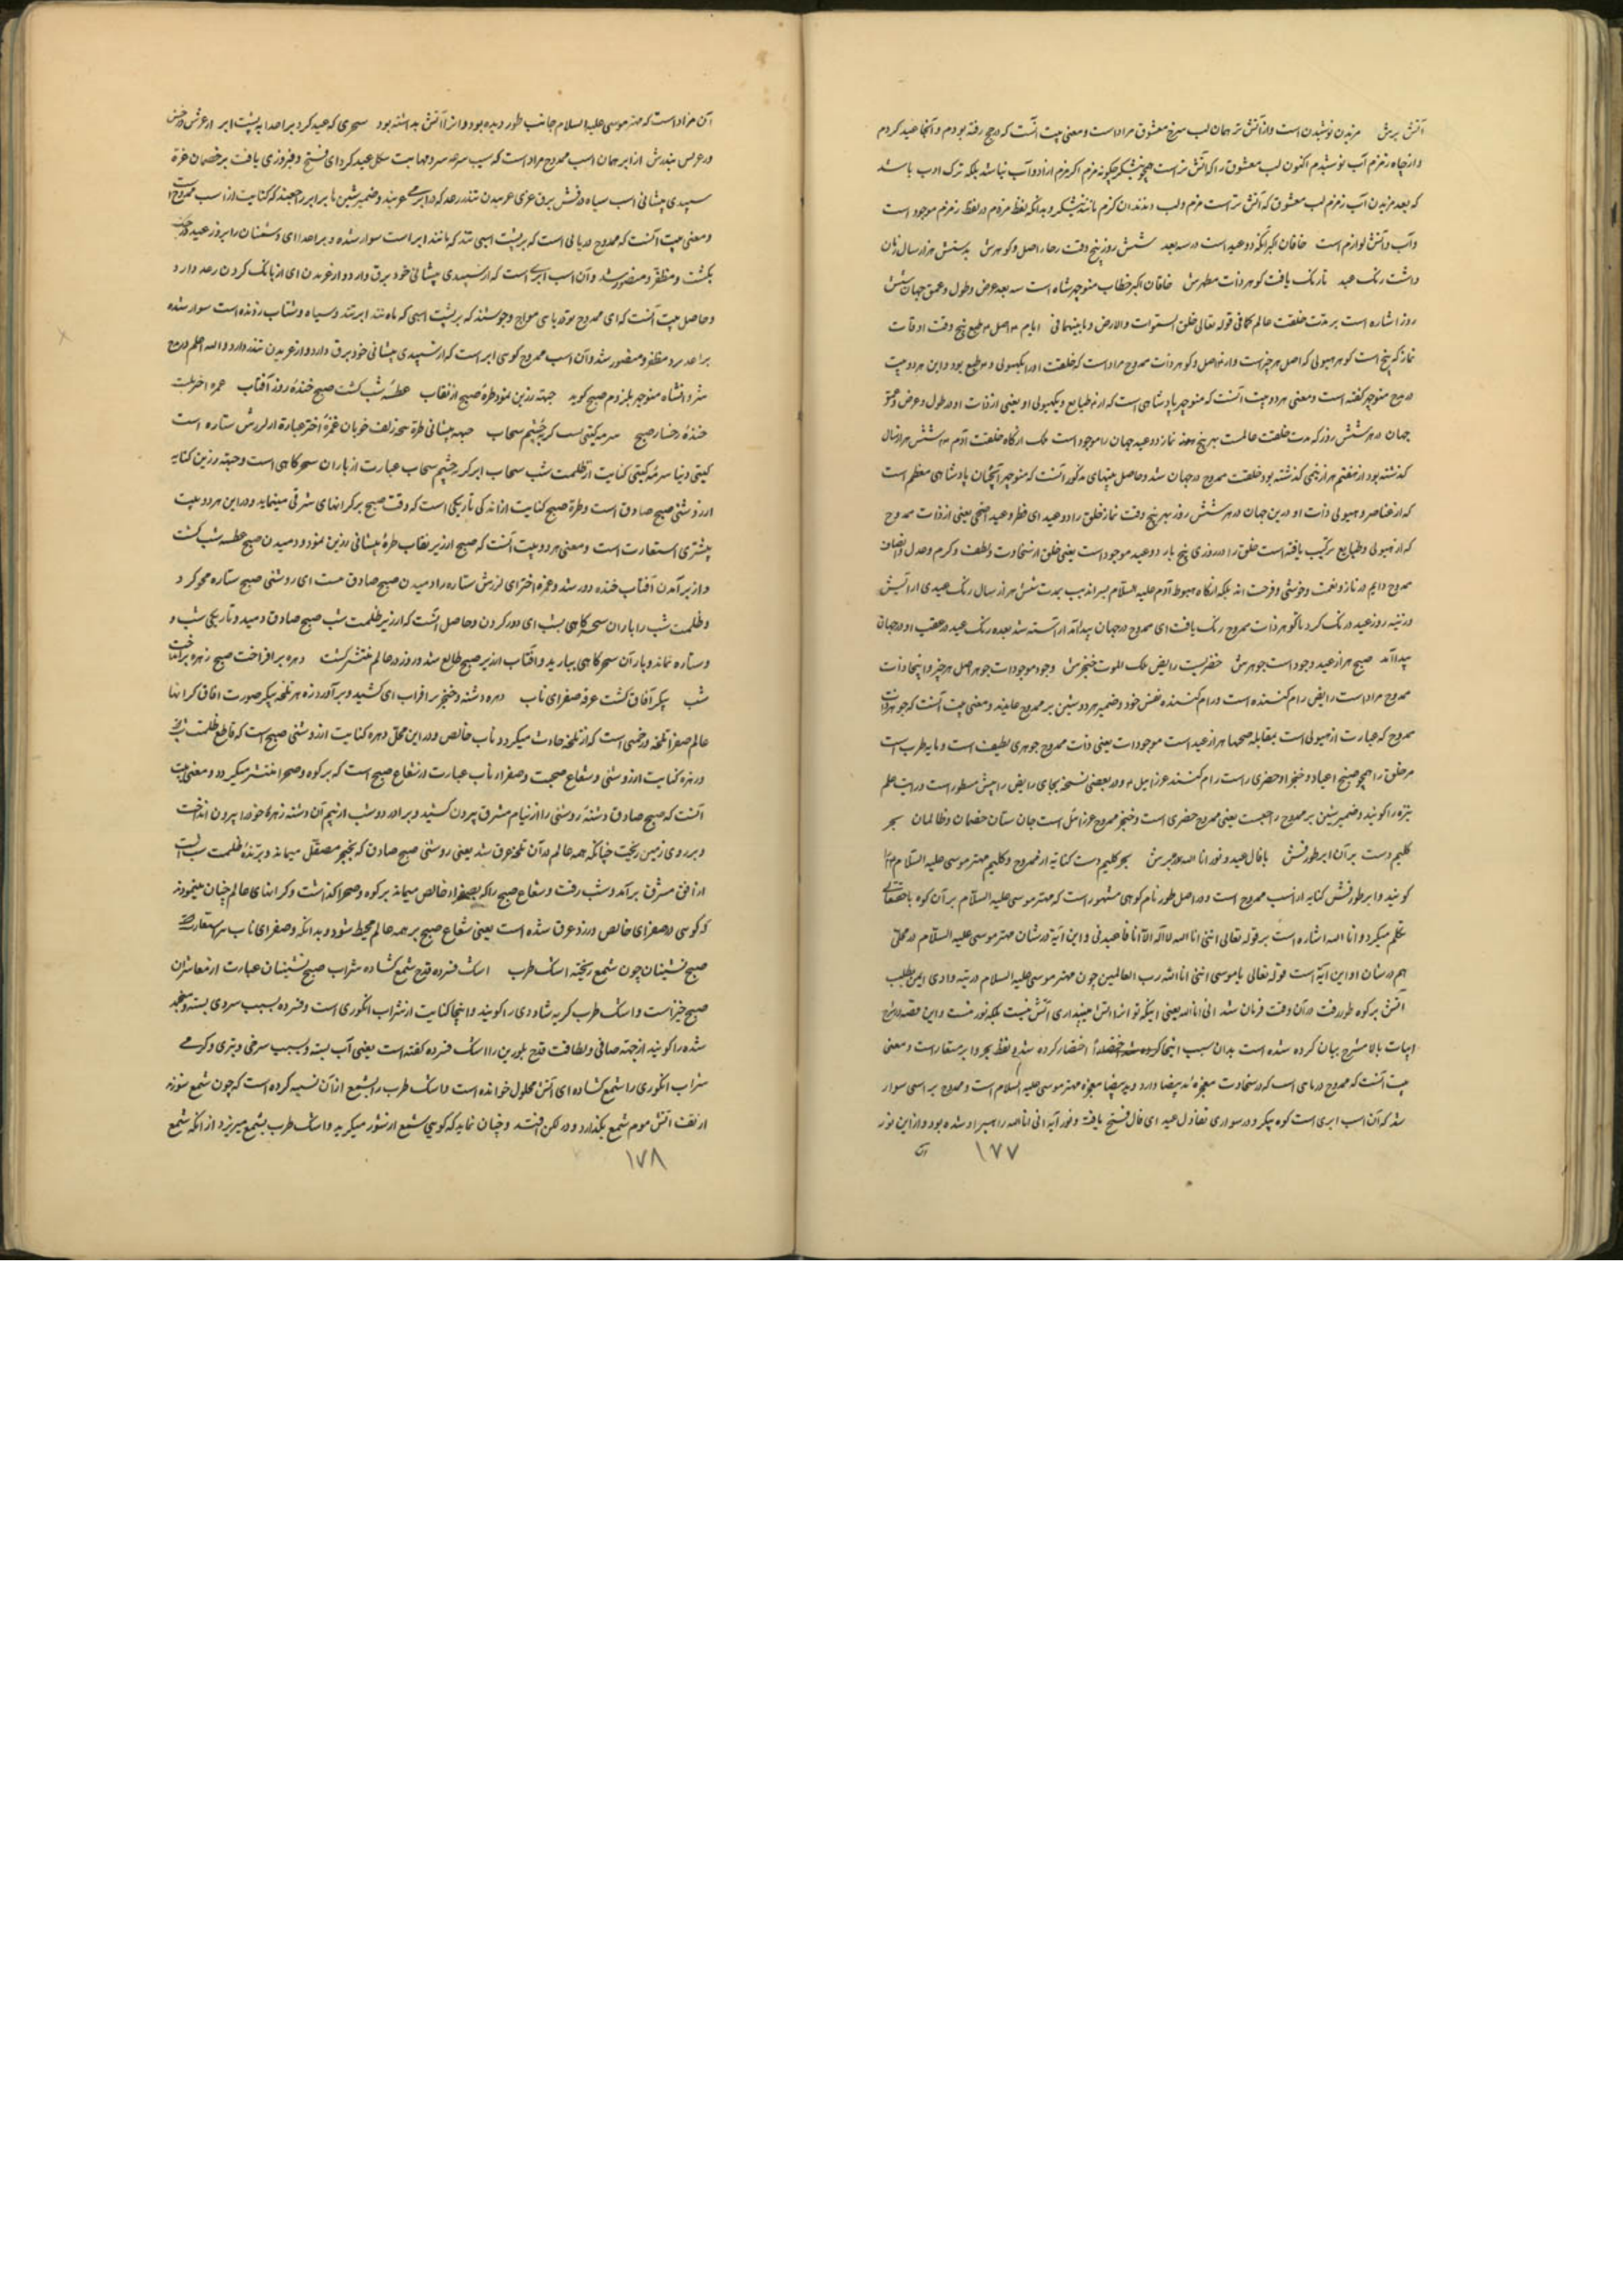 آتش برش مزیدن نوشیدن است و از آتش تر همان لب سرخ معشوق مراد است و معنی بیت آنست که در حج رفته بودم و آنجا عید کردم
و از چاه زمزم آب نوشیدم اکنون لب معشوق را که آتش تر است همچو نیشکر چگونه مزم اگر مزم از ادب نباشد بلکه ترک ادب باشد
که بعد مزیدن آب زمزم لب معشوق که آتش تر است مزم و لب دندان گزم مانند نیشکر و بدانکه لفظ مزم در لفظ زمزم موجود است
و آب و آتش لوازم است خاقان اکبر آنکه دو عید است در سه بعد شش روز پنج وقت چار اصل و گوهرش به شش هزار سال زمان
داشت رنگ عید تا رنگ یافت گوهر ذات مطهرش خاقان اکبر خطاب منوچهر شاه است سه بعد عرض و طول و عمق جهان شش
روز اشاره است بر مدت خلقت عالم کما فی قوله تعالی خلق السموات والارض وما بینهما فی ایام پنج وقت اوقات
نماز که پنج است گوهر هیولی که اصل هر چیز است و گوهر ذات ممدوح مراد است که خلقت او از یک هیولی و طبع بود و این هر دو بیت
در مدح منوچهر گفته است و معنی هر دو بیت آنست که منوچهر پادشاهی است که از طبایع و یک هیولی او یعنی از ذات او در طول و عرض و عمق
جهان در هر شش روز که مدت خلقت عالمست بهر پنج نماز دو عید جهان را موجود است از گاه خلقت آدم شش هزار سال
گذشته بود از هفتم هزار پنجمی گذشته بود خلقت ممدوح در جهان شد و حاصل بیتهای مذکور آنست که منوچهر آنچنان پادشاهی معظم است
که از عناصر و هیولی ذات او درین جهان در هر شش روز بهر پنج وقت نماز خلق را دو عید ای فطر و عید اضحی یعنی از ذات ممدوح
که از هیولی و طبایع ترکیب یافته است خلق را در روزی پنج بار دو عید موجود است یعنی خلق از سخاوت و لطف و کرم و عدل و انصاف
ممدوح دایم در ناز و نعمت و خوشی و فرحت اند بلکه از گاه هبوط آدم علیه السلام بسراندیب بمدت شش هزار سال رنگ عیدی آرایش
و زینه روز عید درنگ کرد تا گوهر ذات ممدوح رنگ یافت ای ممدوح در جهان پیدا آمد آراسته شد بعده رنگ عید در عقب او در جهان
پیدا آمد صبح هزار عید وجود است جوهرش خضریست رایض ملک الموت خنجرش وجود موجودات جوهر اصل هر چیز و اینجا ذات
ممدوح مراد است رایض رام کننده است و رام کننده نفس خود و ضمیر هر دو شین بر ممدوح عایدند و معنی بیت آنست که جوهر ذات
ممدوح که عبارت از هیولی است بمقابله صبحها هزار عید است موجودات یعنی ذات ممدوح جوهری لطیف است و مایه طرب است
مر خلق را همچو صبح اعیاد و خنجر او حضری راست رام کننده عزرائیل و در بعضی نسخه بجای رایض رایش مسطور است درایت علم
نیزه را گویند و ضمیر شین بر ممدوح راجعست یعنی ممدوح خضری است و خنجر ممدوح عزرائیل است جان ستان خصمان و ظالمان بحر
کلیم دست بر آن ابر طور فش با فال عید و نور انا الله برش بحر کلیم دست کنایه از ممدوح و کلیم مهتر موسی علیه السلام را
گویند و ابر طور فش کنایه از اسب ممدوح است و در اصل طور نام کوهی مشهور است که مهتر موسی علیه السلام بر آن کوه با حقتعالی
تکلم میکرد و انا الله اشاره است بر قوله تعالی اننی انا الله لا اله الا انا فاعبدنی و این آیة در شان مهتر موسی علیه السلام در محل
هم در شان او این آیة است قوله تعالی یا موسی اننی انا الله رب العالمین چون مهتر موسی علیه السلام در تیه وادی ایمن بطلب
آتش بر کوه طور رفت در آن وقت فرمان شد انی انا الله یعنی اینکه تو آنرا آتش میپنداری آتش نیست بلکه نور منست و این قصه در شرح
ابیات بالا مشرح بیان کرده شده است بدان سبب اینجا اختصار کرده شد لفظ بحر و ابر مستعار است و معنی
بیت آنست که ممدوح دریای است که در سخاوت معجزه ید بیضا دارد و ید بیضا معجزه مهتر موسی علیه السلام است و ممدوح بر اسبی سوار
شد که آن اسب ابری است کوه پیکر و در سواری تفاؤل عید ای فال فتح یافته و نور آیة انی انا الله راهبر او شده بود و از این نور
۱۷۷
آن مراد است که مهتر موسی علیه السلام جانب طور دیده بود و آنرا آتش پنداشته بود سحری که عید کرد بر اعدا به پشت ابر
در عرش بندرش از ابر همان اسب ممدوح مراد است که سیب سرعه سر و مهابت شکل عید کرد ای فتح و فیروزی یافت بر خصمان غرة
سپیدی پیشانی اسب سیاه درفش برق غرش غریدن تندر رعد که در ابر میغرند و ضمیر شین ها بر ابر راجعند که کنایت از اسب ممدوح است
و معنی بیت آنست که ممدوح دریایی است که بر پشت اسپی تند که مانند ابر است سوار شده و بر اعدا ای دشمنان را بروز عید
بکشت و مظفر و منصور شد و آن اسب ابری است که از سپیدی پیشانی خود برق دارد و از غریدن ای از بانگ کردن رعد دارد
و حاصل بیت آنست که ای ممدوح تو دریای مواج و جوشنده که بر پشت اسپی که مانند ابر تند و سیاه و شتاب رونده است سوار شده
بر اعدا مظفر و منصور شد و آن اسب ممدوح گوی ابر است که از سپیدی پیشانی خود برق دارد و از غریدن تندر دارد و الله اعلم در مدح
شروانشاه منوچهر بلزدم صبح گوید جبهه زرین نمود طره صبح از نقاب عطسه شب گشت صبح خنده روز آفتاب غمزه اختر ببست
خنده رخسار صبح سرمه گیتی بشست گریه چشم سحاب جبهه پیشانی طره زلف خوبان غمزه اختر عبارة از لرزش ستاره است
گیتی دنیا سرمه گیتی کنایت از ظلمت شب سحاب ابر گریه چشم سحاب عبارت از باران سحرگاهی است و جبهه زرین کنایه
از روشنی صبح صادق است و طره صبح کنایت از اندکی تاریکی است که وقت صبح بر کرانهای شرقی مینماید و در این هر دو بیت
بیشتری استعارت است و معنی هر دو بیت آنست که صبح از زیر نقاب طره پیشانی زرین نمود و دمیدن صبح عطسه شب گشت
و از بر آمدن آفتاب خنده دور شد و غمزه اختر ای لرزش ستاره را دمیدن صبح صادق بست ای روشنی صبح ستاره محو کرد
و ظلمت شب را باران سحرگاهی بشست ای دور کردن و حاصل آنست که از زیر ظلمت شب صبح صادق دمید و تاریکی شب و
و ستاره نماند و باران سحرگاهی ببارید و آفتاب از زیر صبح طالع شد و روز در عالم منتشر گشت دهره بر افراخت صبح زهره بر انداخت
شب پیکر آفاق گشت غرقه صفرای ناب دهره دشنه و خنجر بر افراخت ای کشید و بر آورد زهره تلخه پیکر صورت آفاق کرانها
عالم صفرا تلخه و زخمی است که از تلخه حادث میگردد ناب خالص و در این محل دهره کنایت از روشنی صبح است که قاطع ظلمت شب
و زهره کنایت از روشنی و شعاع صبحست و صفرای ناب عبارت از شعاع صبح است که بر کوه و صحرا منتشر میگردد و معنی بیت
آنست که صبح صادق دشنه روشنی را از نیام مشرق بیرون کشید و بر آورد و شب از بیم آن دشنه زهره خود را بیرون انداخت
و بر روی زمین ریخت چنانکه همه عالم در آن تلخه غرق شد یعنی روشنی صبح صادق که بخنجر مصقل میماند و برنده ظلمت شب است
از افق مشرق بر آمد و شب رفت و شعاع صبح را که بصفرای خالص میماند بر کوه و صحرا گذاشت و کرانهای عالم چنان مینمودند
که گویی در صفرای خالص و زرد غرق شده است یعنی شعاع صبح بر همه عالم محیط شود و بدانکه دهره و صفرای ناب مستعار است
صبح نشینان چون شمع ریخته اشک طرب اشک فسرده قدح شمع گشاده شراب صبح نشینان عبارت از معاشران
صبح خیز است و اشک طرب گریه شادی را گویند و اینجا کنایت از شراب انگوری است و فسرده بسبب سردی بسته و منجمد
شده را گویند از جهت صافی و لطافت قدح بلورین را اشک فسرده گفته است یعنی آب بسته و بسبب سرخی و تیزی و گرمی
شراب انگوری را شمع گشاده ای آتش محلول خوانده است و اشک طرب را بشمع از آن تشبیه کرده است که چون شمع سوزد
از تف آتش موم شمع بگدازد و در لگن افتد و چنان نماید که گویی شمع از سوز میگرید و اشک طرب بشمع میریزد از آنکه شمع
۱۷۸